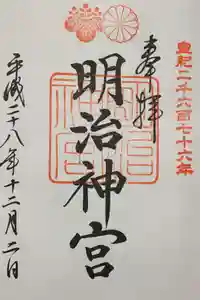 皇紀二千六百七十六年
奉拝
明治神宮
平成二十八年十二月二日